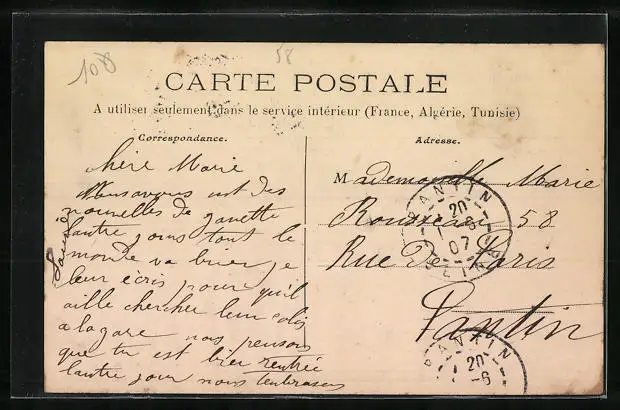 108
58
CARTE POSTALE
A utiliser seulement dans le service intérieur (France, Algérie, Tunisie)
Correspondance.
chère Marie
nous avons ut des
nouvelles de ganette
lautre jours tout le
monde va brien je
leur écris pour qu'il
aille chercher leur colis
a la gare nous pensons
que tu est bien rentrée
lautre jour nous tenbrasons
Adresse.
Mademoiselle Marie
Rousseau 58
Rue De Paris
Pantin
PANTIN
20
-6
07
PANTIN
20
-6